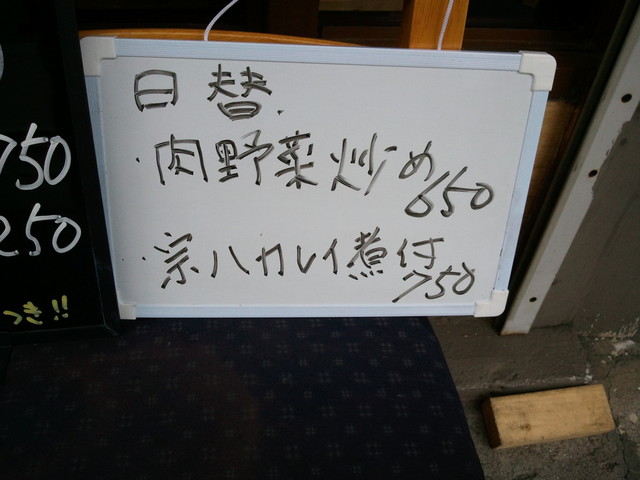 日替.
・肉野菜炒め 650
・宗ハカレイ煮付 750
750
250
つき!!